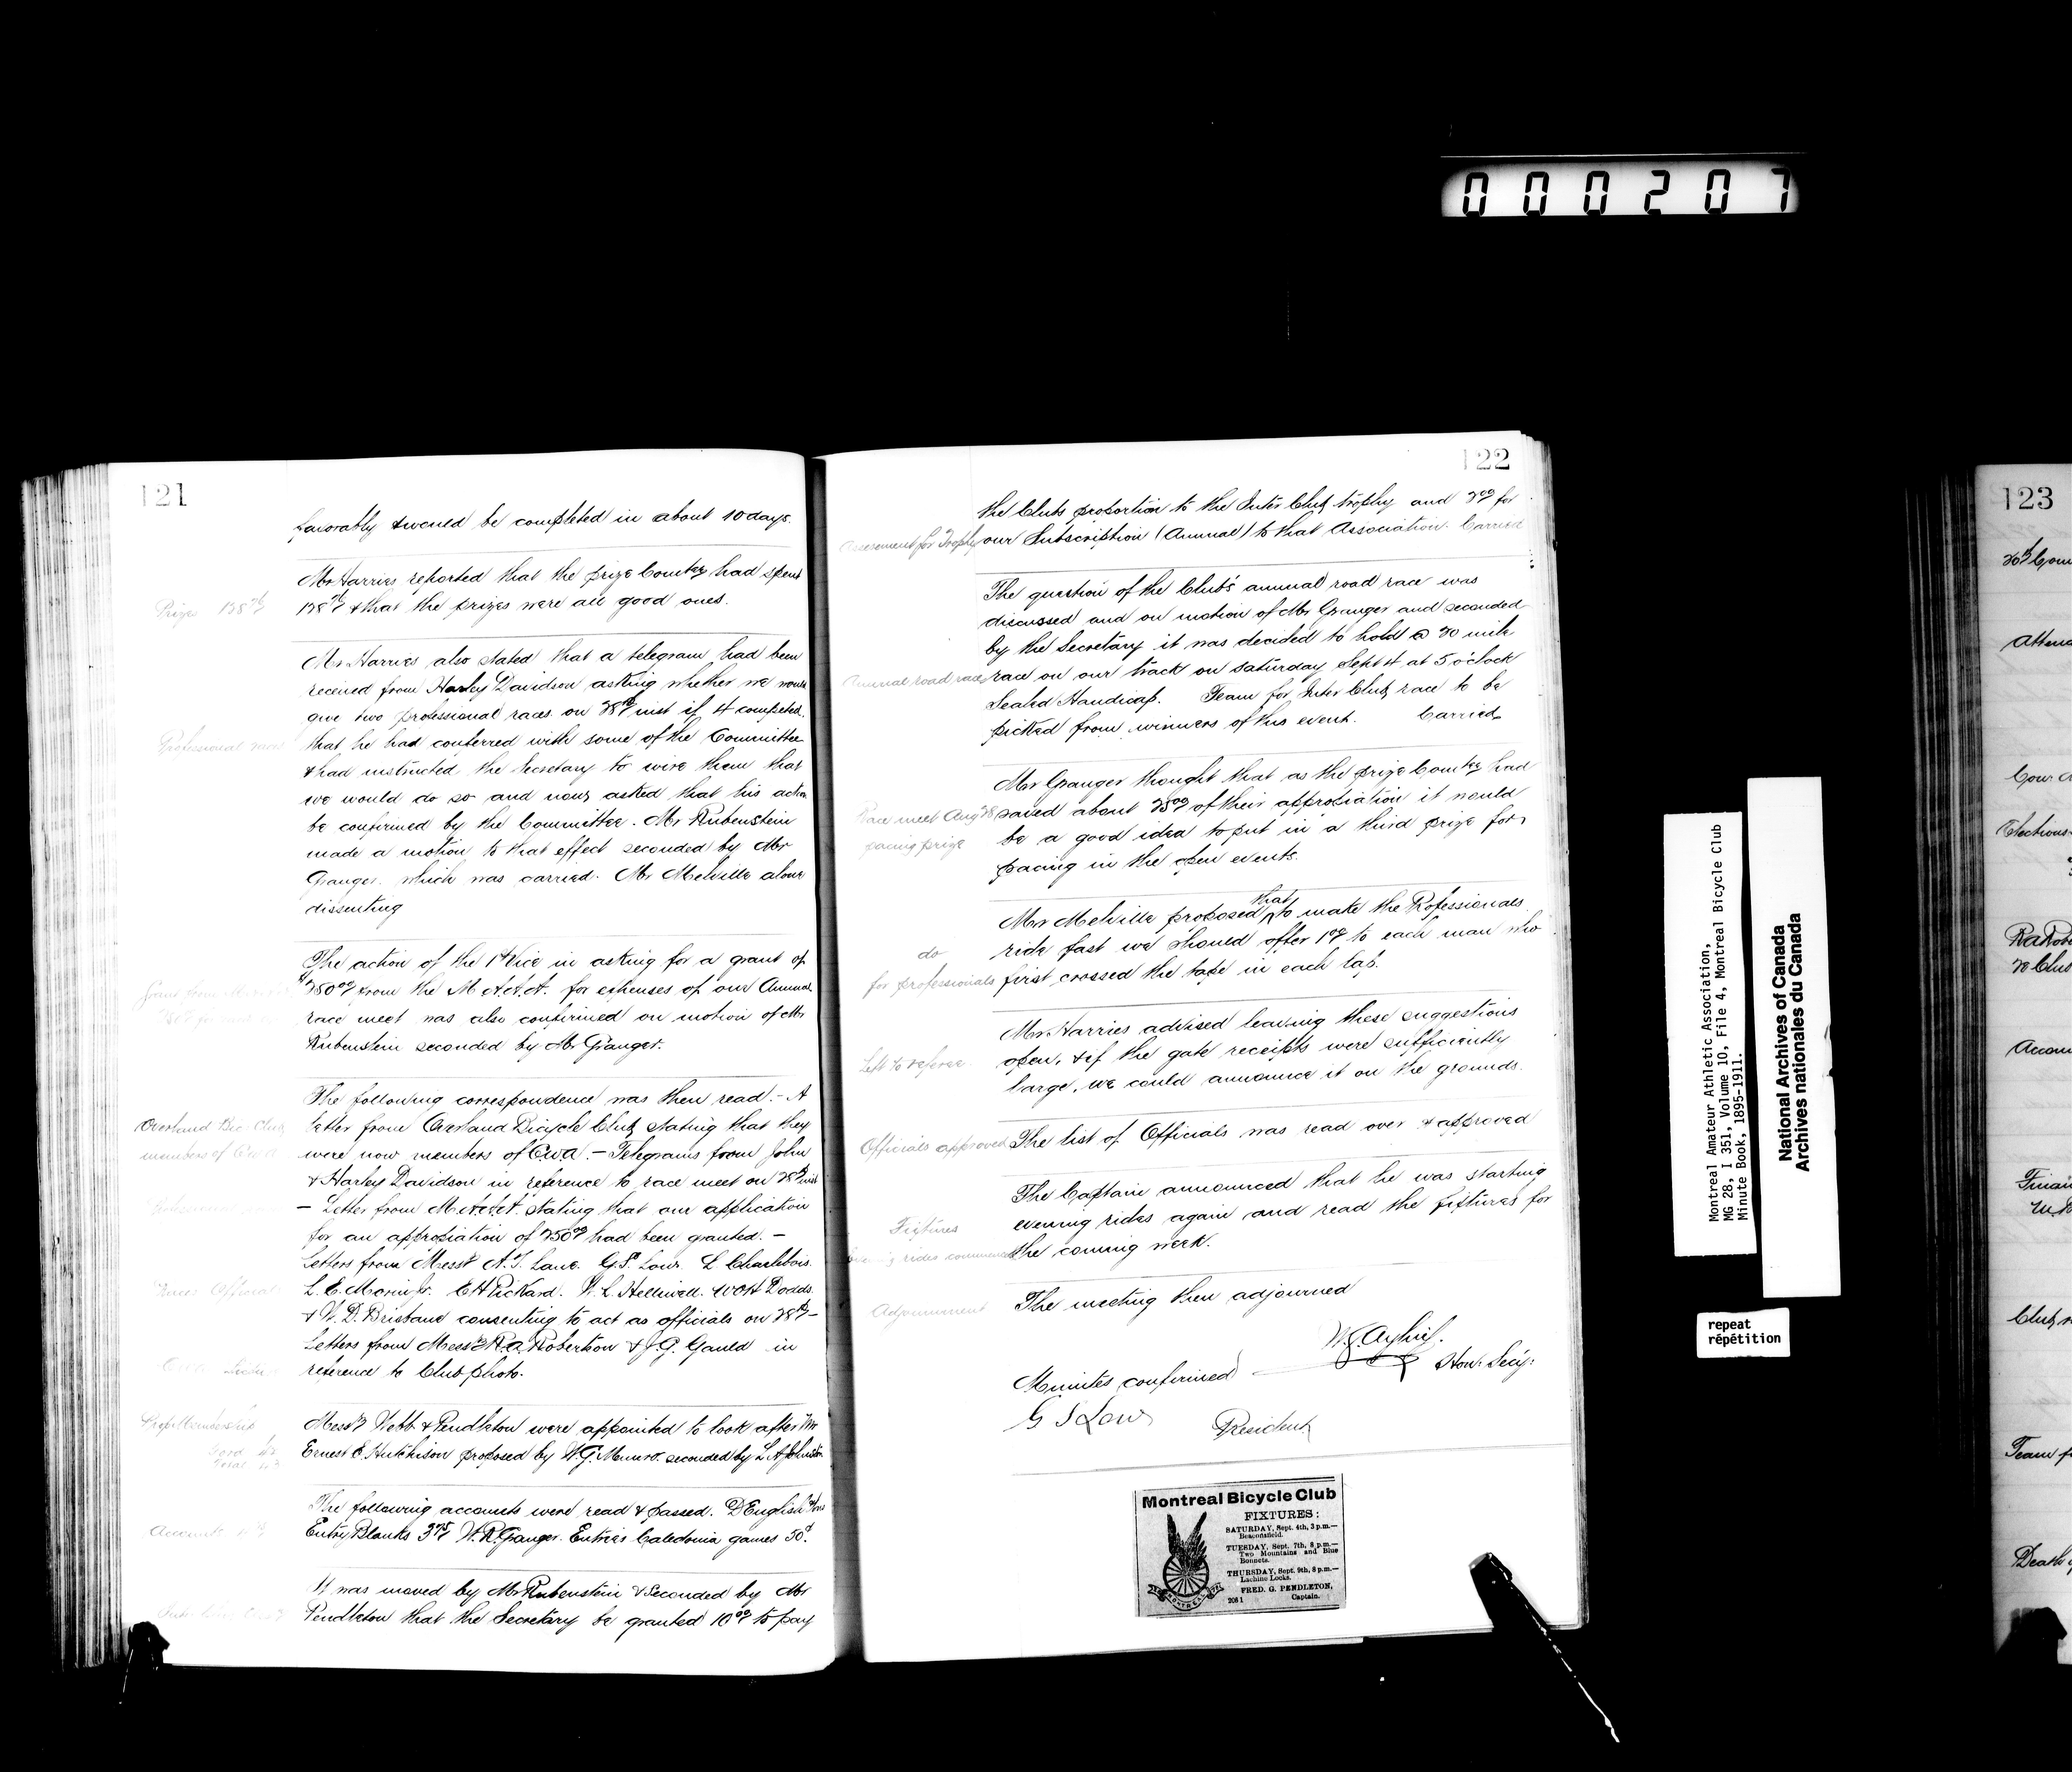 000207
121
favorably & would be completed in about 10 days.
Mr Harries reported that the prize Comtee had spent
Prizes
& that the prizes were all good ones.
Mr Harries also stated that a telegram had been
received from Harley Davidson asking whether we would
give two professional races on 28th inst if 4 competed.
Professional races
that he had conferred with some of the Committee
& had instructed the Secretary to wire them that
we would do so and now asked that his action
be confirmed by the Committee. Mr Rubenstein
made a motion to that effect seconded by Mr
Granger. which was carried. Mr Melville alone
dissenting
The action of the 1st Vice in asking for a grant of
$250.00 from the M.A.A.A. for expenses of our Annual
race meet was also confirmed on motion of Mr
Rubenstein seconded by Mr Granger.
The following correspondence was then read. - A
Overland Bic Club
letter from Overland Bicycle Club stating that they
members of C.W.A
were now members of C.W.A. - Telegrams from John
& Harley Davidson in reference to race meet on 28th inst
- Letter from M.A.A.A. stating that our application
for an appropiation of 250.00 had been granted. -
Letters from Messrs A.T. Lane. G.S. Low. L Charlebois.
Races Officials
L.E. Morin Jr. E H Pickard. W.L. Helliwell. W O H Dodds.
& W.D. Brisbane consenting to act as officials on 28th -
Letters from Messrs R.A. Robertson & J.G. Gauld in
reference to Club photo.
Messrs Webb & Pendleton were appointed to look after Mr
Ernest C. Hutchison proposed by W.G. Munro. seconded by L A Johnston
The following accounts were read & passed. D English & Sons
Accounts
Entry Blanks W.R. Granger. Entries Caledonia games
It was moved by Mr Rubenstein & Seconded by Mr
Pendleton that the Secretary be granted 10.00 to pay
122
the Clubs proportion to the Inter Club trophy and 2.00 for
Assesement for Trophy
our Subscription (Annual) to that Association. Carried
The question of the Club's annual road race was
discussed and on motion of Mr Granger and seconded
by the Secretary it was decided to hold a 20 mile
Annual road race
race on our track on Saturday Sept 4 at 5 o'clock
Sealed Handicap. Team for Inter Club race to be
picked from winners of this event. Carried
Mr Granger thought that as the prize Comtee had
Race meet Aug 28
saved about 25.00 of their appropiation it would
pacing prize
be a good idea to put in a third prize for
pacing in the open events.
Mr Melville proposed that to make the Professionals
do
ride fast we should offer 1.00 to each man who
for professionals
first crossed the tape in each lap.
Mr Harries advised leaving these suggestions
Left to referee
open, & if the gate receipts were sufficiently
large, we could announce it on the grounds.
Officials approved
The list of Officials was read over & approved
The Captain announced that he was starting
Fixtures
evening rides again and read the fixtures for
evening rides commence
the coming week.
Adjournment
The meeting then adjourned
Hon: Secy:
Minutes confirmed
G S Low
President
Montreal Bicycle Club
FIXTURES:
SATURDAY, Sept. 4th, 3 p.m.—
Beaconsfield.
TUESDAY, Sept. 7th, 8 p.m.—
Two Mountains and Blue
Bonnets.
THURSDAY, Sept. 9th, 8 p.m.—
Lachine Locks.
FRED. G. PENDLETON,
206 1 Captain.
MONTREAL
Montreal Amateur Athletic Association,
MG 28, I 351, Volume 10, File 4, Montreal Bicycle Club
Minute Book, 1895-1911.
National Archives of Canada
Archives nationales du Canada
repeat
répétition
123
Attend
Elections
Accoun
Finan
Club
Team f
Death